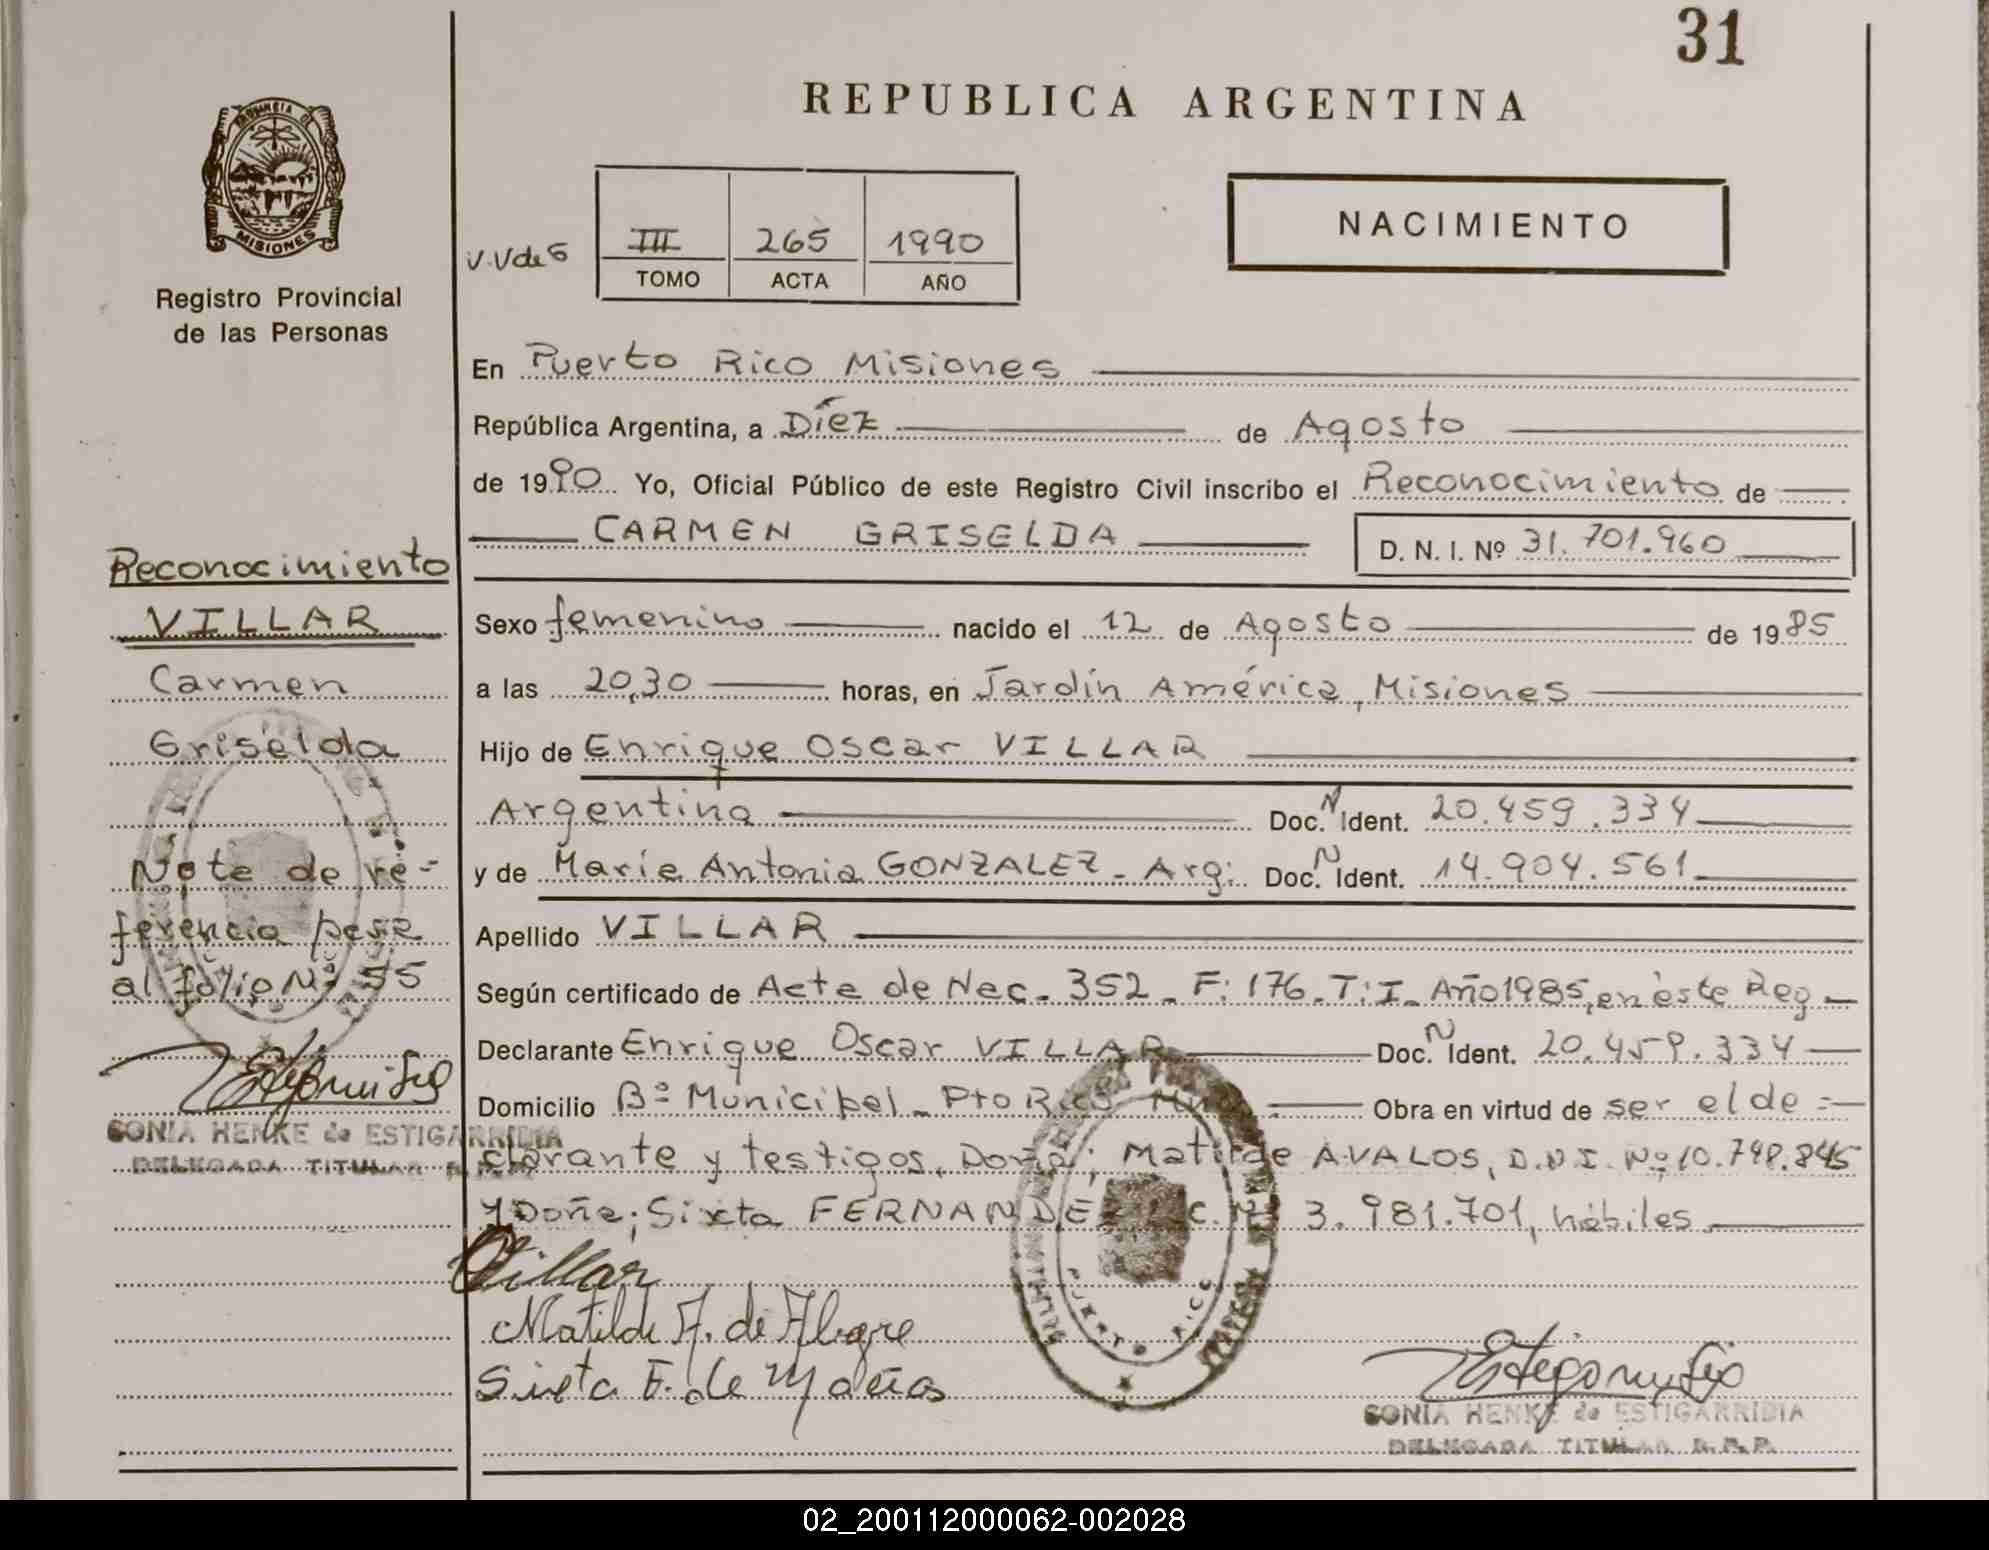 31
REPUBLICA ARGENTINA
PROVINCIA DE
MISIONES
Registro Provincial
de las Personas
V.V de G
III 265 1990
TOMO ACTA AÑO
NACIMIENTO
En Puerto Rico Misiones
República Argentina, a Díez de Agosto
de 1990 Yo, Oficial Público de este Registro Civil inscribo el Reconocimiento de
CARMEN GRISELDA D. N. I. Nº 31.701.960
Sexo femenino nacido el 12 de Agosto de 1985
a las 20,30 horas, en Jardín América, Misiones
Hijo de Enrique Oscar VILLAR
Argentina Doc. N Ident. 20.459.334
y de María Antonia GONZALEZ - Arg: Doc. N Ident. 14.904.561
Apellido VILLAR
Según certificado de Acta de Nac. 352 - F: 176 - T: I - Año 1985, en éste Reg
Declarante Enrique Oscar VILLAR Doc. N Ident. 20.459.334
Domicilio Bº Municipal - Pto Rico Mnes. Obra en virtud de ser el de =
clarante y testigos, Doña; Matilde AVALOS, D.N.I. Nº 10.748.845
y Doña; Sixta FERNANDEZ L.C. Nº 3.981.701, hábiles
Villar
Matilde A. de Alegre
Sixta F. de
SONIA HENKE de ESTIGARRIBIA
DELEGADA TITULAR R.P.P.
PUERTO RICO
Reconocimiento
VILLAR
Carmen
Griselda
Nota de re=
ferencia pasa
al folio Nº 55
SONIA HENKE de ESTIGARRIBIA
DELEGADA TITULAR
02_200112000062-002028